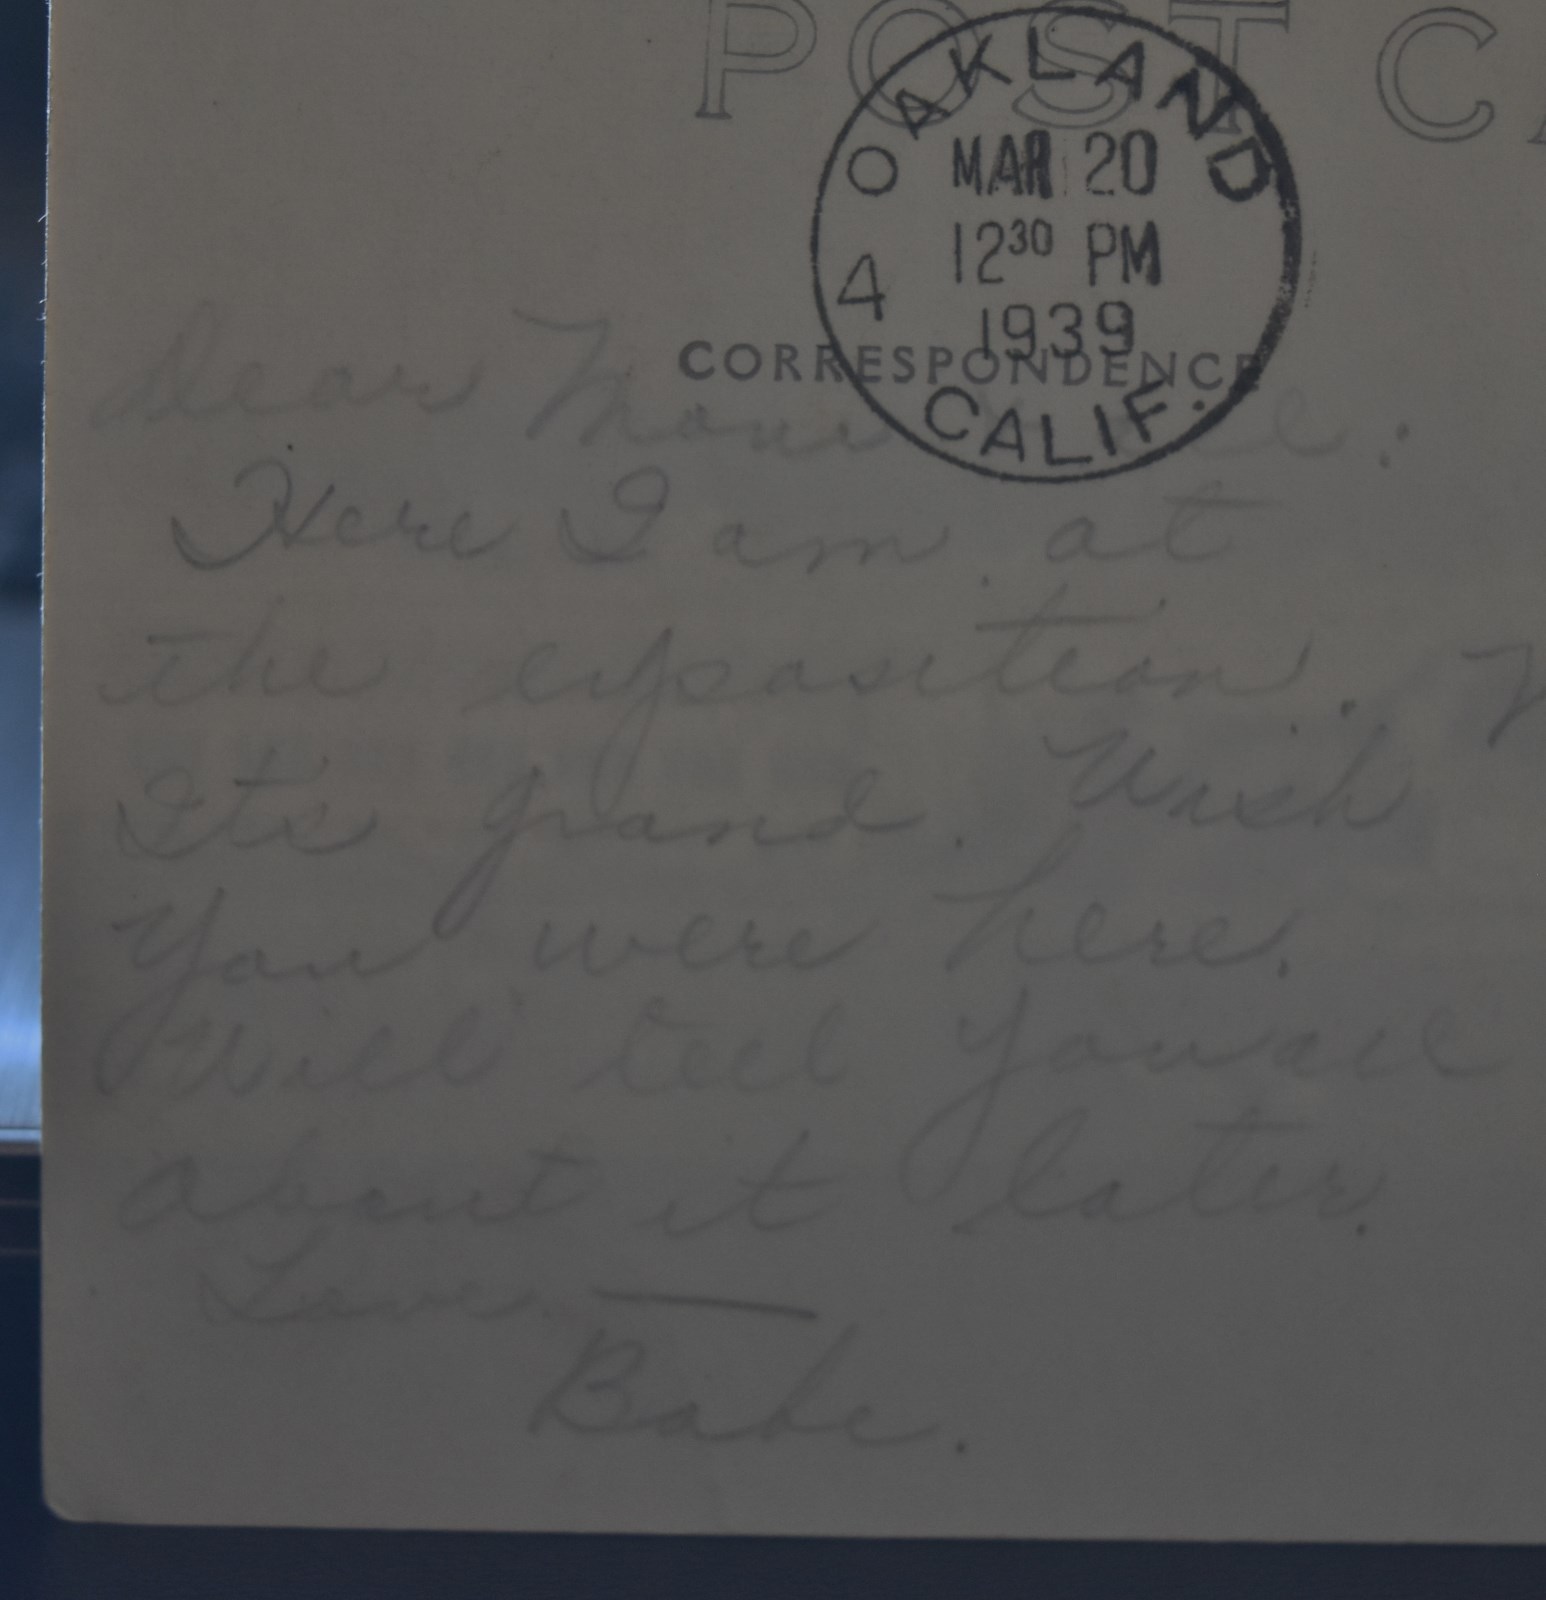 POST C
OAKLAND
MAR 20
12³⁰ PM
4
1939
CORRESPONDENCE
CALIF.
Dear
Here I am at
the exposition.
Its grand. Wish
You were here.
Will tell you all
about it later.
Love —
Babe.